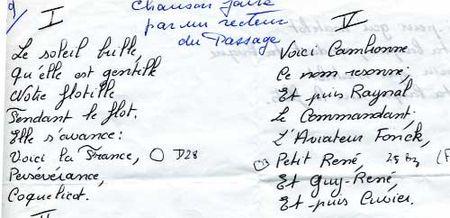 9)
I
Chanson faite
par un recteur
du Passage
Le soleil brille,
Qu'elle est gentille
Notre flotille
Fendant le flot.
Elle s'avance:
Voici la France, D28
Persévérance,
Coquelicot.
II
V
Voici Cambronne
Ce nom résonne,
Et puis Raynal
Le Commandant,
L'Aviateur Fonck,
Petit René,
Et Guy-René,
Et puis Cuvier.